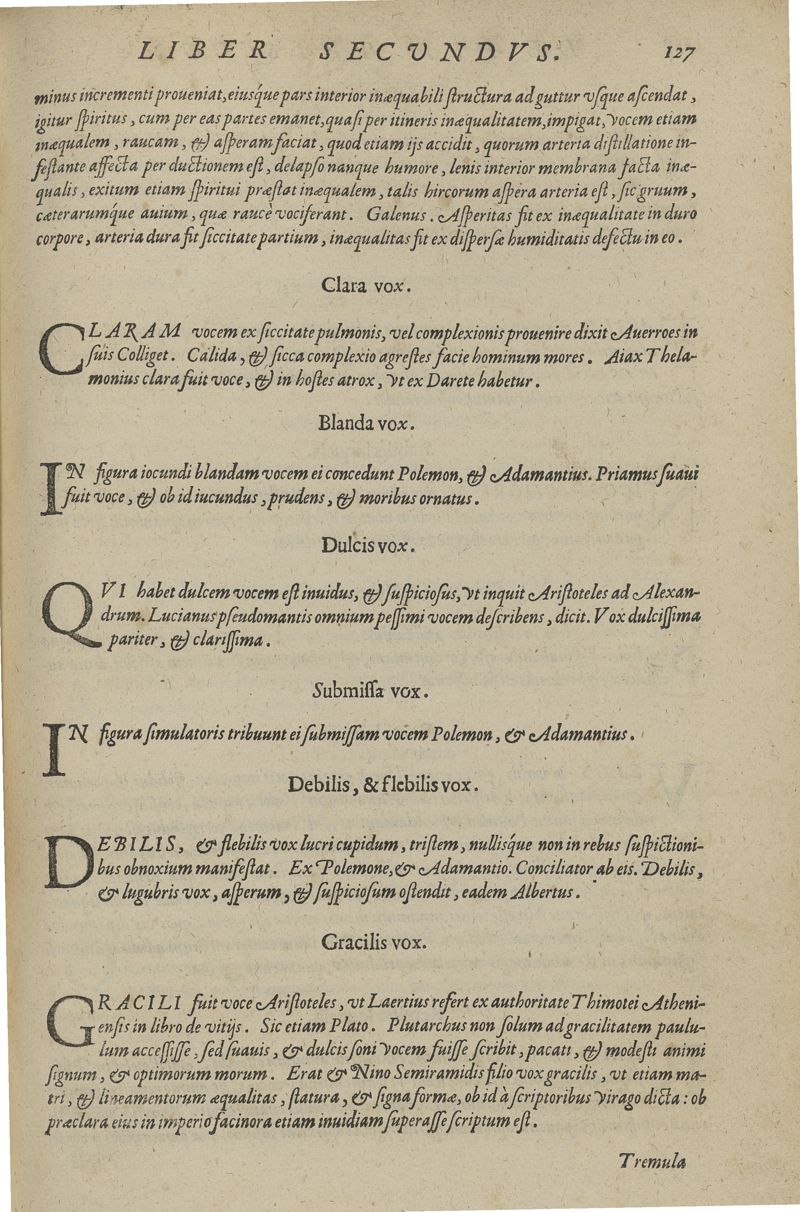 LIBER SECVNDVS. 127
minus incrementi proueniat, eiusq́ue pars interior inæquabili structura ad guttur vsque ascendat,
igitur spiritus, cum per eas partes emanet, quasi per itineris inæqualitatem, impigat, vocem etiam
inæqualem, raucam, & asperam faciat, quod etiam ijs accidit, quorum arteria distillatione in-
festante affecta per ductionem est, delapso nanque humore, lenis interior membrana facta inæ-
qualis, exitum etiam spiritui præstat inæqualem, talis hircorum aspera arteria est, sic gruum,
cæterarumq́ue auium, quæ raucè vociferant. Galenus. Asperitas fit ex inæqualitate in duro
corpore, arteria dura fit siccitate partium, inæqualitas fit ex dispersæ humiditatis defectu in eo.
Clara vox.
CLARAM vocem ex siccitate pulmonis, vel complexionis prouenire dixit Auerroes in
suis Colliget. Calida, & sicca complexio agrestes facie hominum mores. Aiax Thela-
monius clara fuit voce, & in hostes atrox, vt ex Darete habetur.
Blanda vox.
IN figura iocundi blandam vocem ei concedunt Polemon, & Adamantius. Priamus suaui
fuit voce, & ob id iucundus, prudens, & moribus ornatus.
Dulcis vox.
QVI habet dulcem vocem est inuidus, & suspiciosus, vt inquit Aristoteles ad Alexan-
drum. Lucianus pseudomantis omnium pessimi vocem describens, dicit. Vox dulcissima
pariter, & clarissima.
Submissa vox.
IN figura simulatoris tribuunt ei submissam vocem Polemon, & Adamantius.
Debilis, & flebilis vox.
DEBILIS, & flebilis vox lucri cupidum, tristem, nullisq́ue non in rebus suspictioni-
bus obnoxium manifestat. Ex Polemone, & Adamantio. Conciliator ab eis. Debilis,
& lugubris vox, asperum, & suspiciosum ostendit, eadem Albertus.
Gracilis vox.
GRACILI fuit voce Aristoteles, vt Laertius refert ex authoritate Thimotei Atheni-
ensis in libro de vitijs. Sic etiam Plato. Plutarchus non solum ad gracilitatem paulu-
lum accessisse, sed suauis, & dulcis soni vocem fuisse scribit, pacati, & modesti animi
signum, & optimorum morum. Erat & Nino Semiramidis filio vox gracilis, vt etiam ma-
tri, & lineamentorum æqualitas, statura, & signa formæ, ob id à scriptoribus virago dicta: ob
præclara eius in imperio facinora etiam inuidiam superasse scriptum est.
Tremula